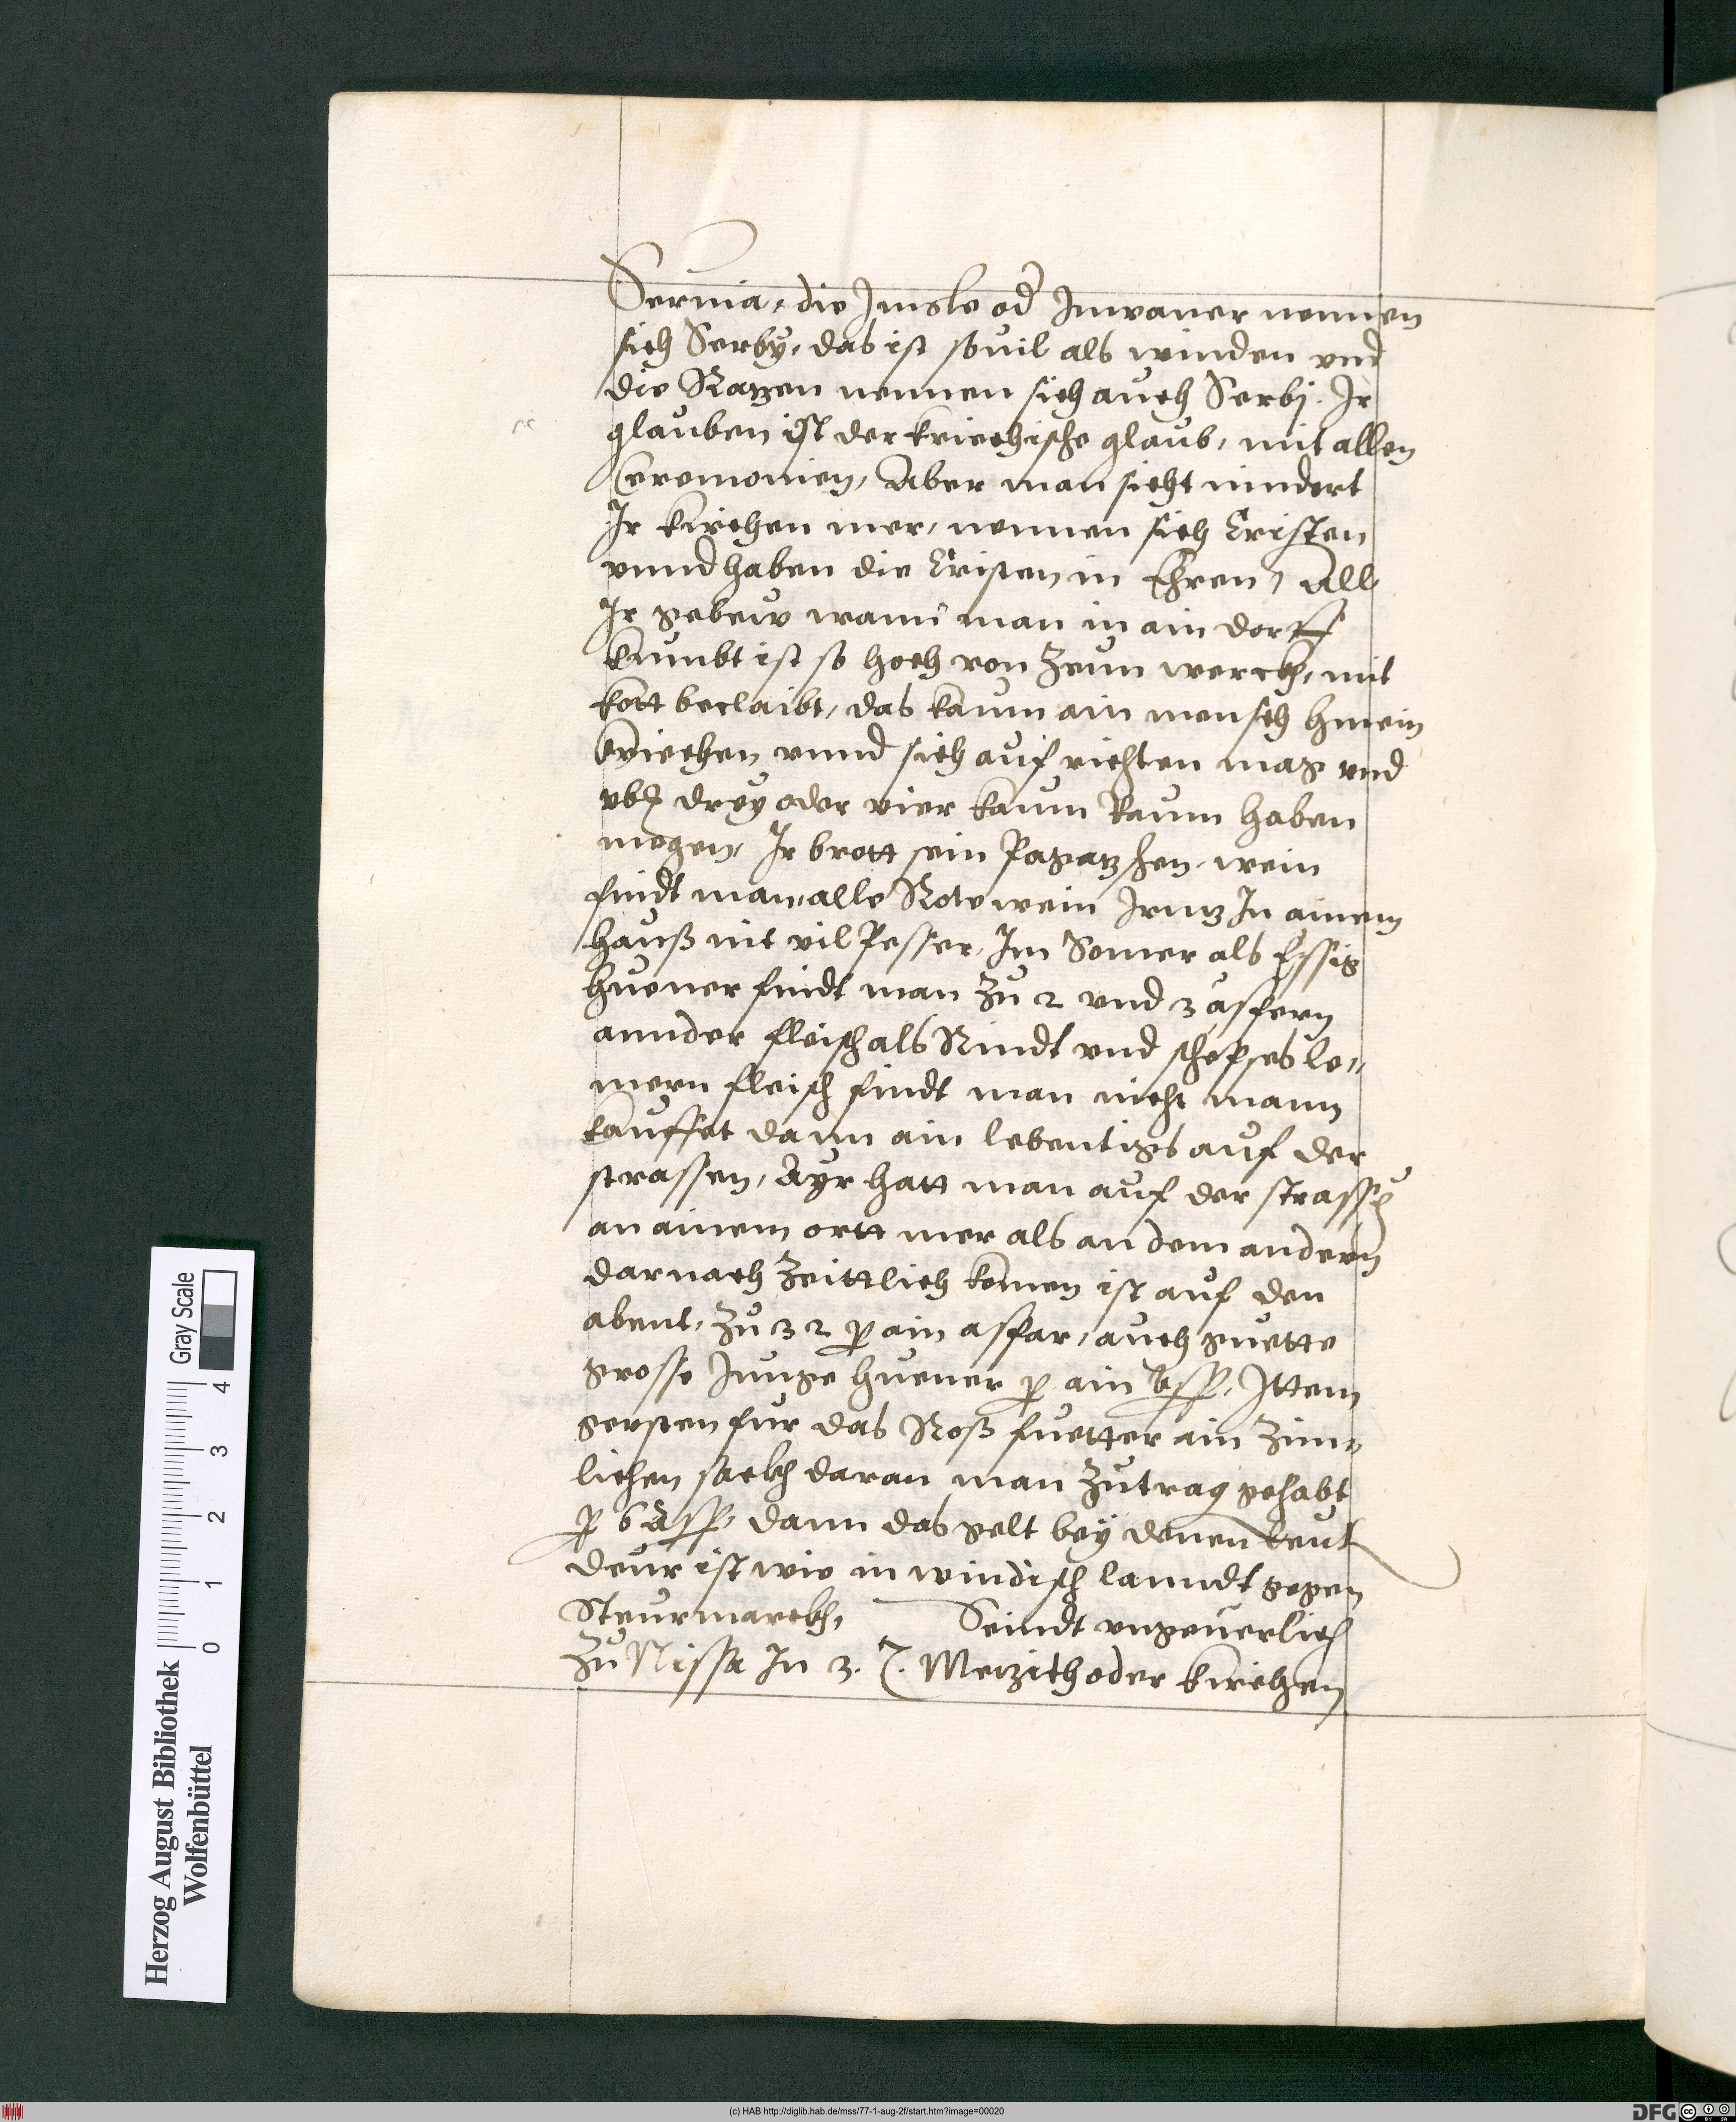 Seruia, die Jnsle od Jnwaner nennen
sich Serby, das ist souil als winden vnd
die Ratzen nennen sich auch Serbj. Jr
glauben ist der kriechische glaub, mit allen
Ceremonien, Aber man sicht nindert
Jr kirchen mer, nennen sich Cristen
vnnd haben die Cristen in Ehren, All
Jr gebew wann man in ain dorff
kumbt ist so hoch von Zeun werckh, mit
kott beclaibt, das kaum ain mensch hinein
kriechen vnnd sich auf richten mag vnd
vber drey oder vier kaum Raum haben
mogen, Jr brott sein Pagatzhen, wein
findt man, alle Rote wein Jrntz Jn ainem
hauß nit vil Pesser, Jm Somer als Essig
huener findt man zu 2 vnd 3 aspern
annder fleisch als Rindt vnd schepses le-
mern fleisch findt man nicht mann
kauffet dann ain lebentigs auf der
strassen, Ayr hatt man auf der strassen
an ainem ortt mer als an dem andern
darnach Zeittlich komen ist auf den
abent, zu 32 p ain aspar, auch guette
grosse Junge huener p ain asp, Jttem
gersten fur das Roß fuetter ain Zim-
lichen sackh daran man zutrag gehabt
p 6 Asp, dann das gelt bey denen Leut
deur ist wie in windisch lanndt gegen
Steurmarckh, Seindt vngeuerlich
zu Nissa Jn 3. 7. Metzith oder kirchen
Herzog August Bibliothek
Wolfenbüttel
Gray Scale
0 1 2 3 4
(c) HAB http://diglib.hab.de/mss/77-1-aug-2f/start.htm?image=00020
DFG